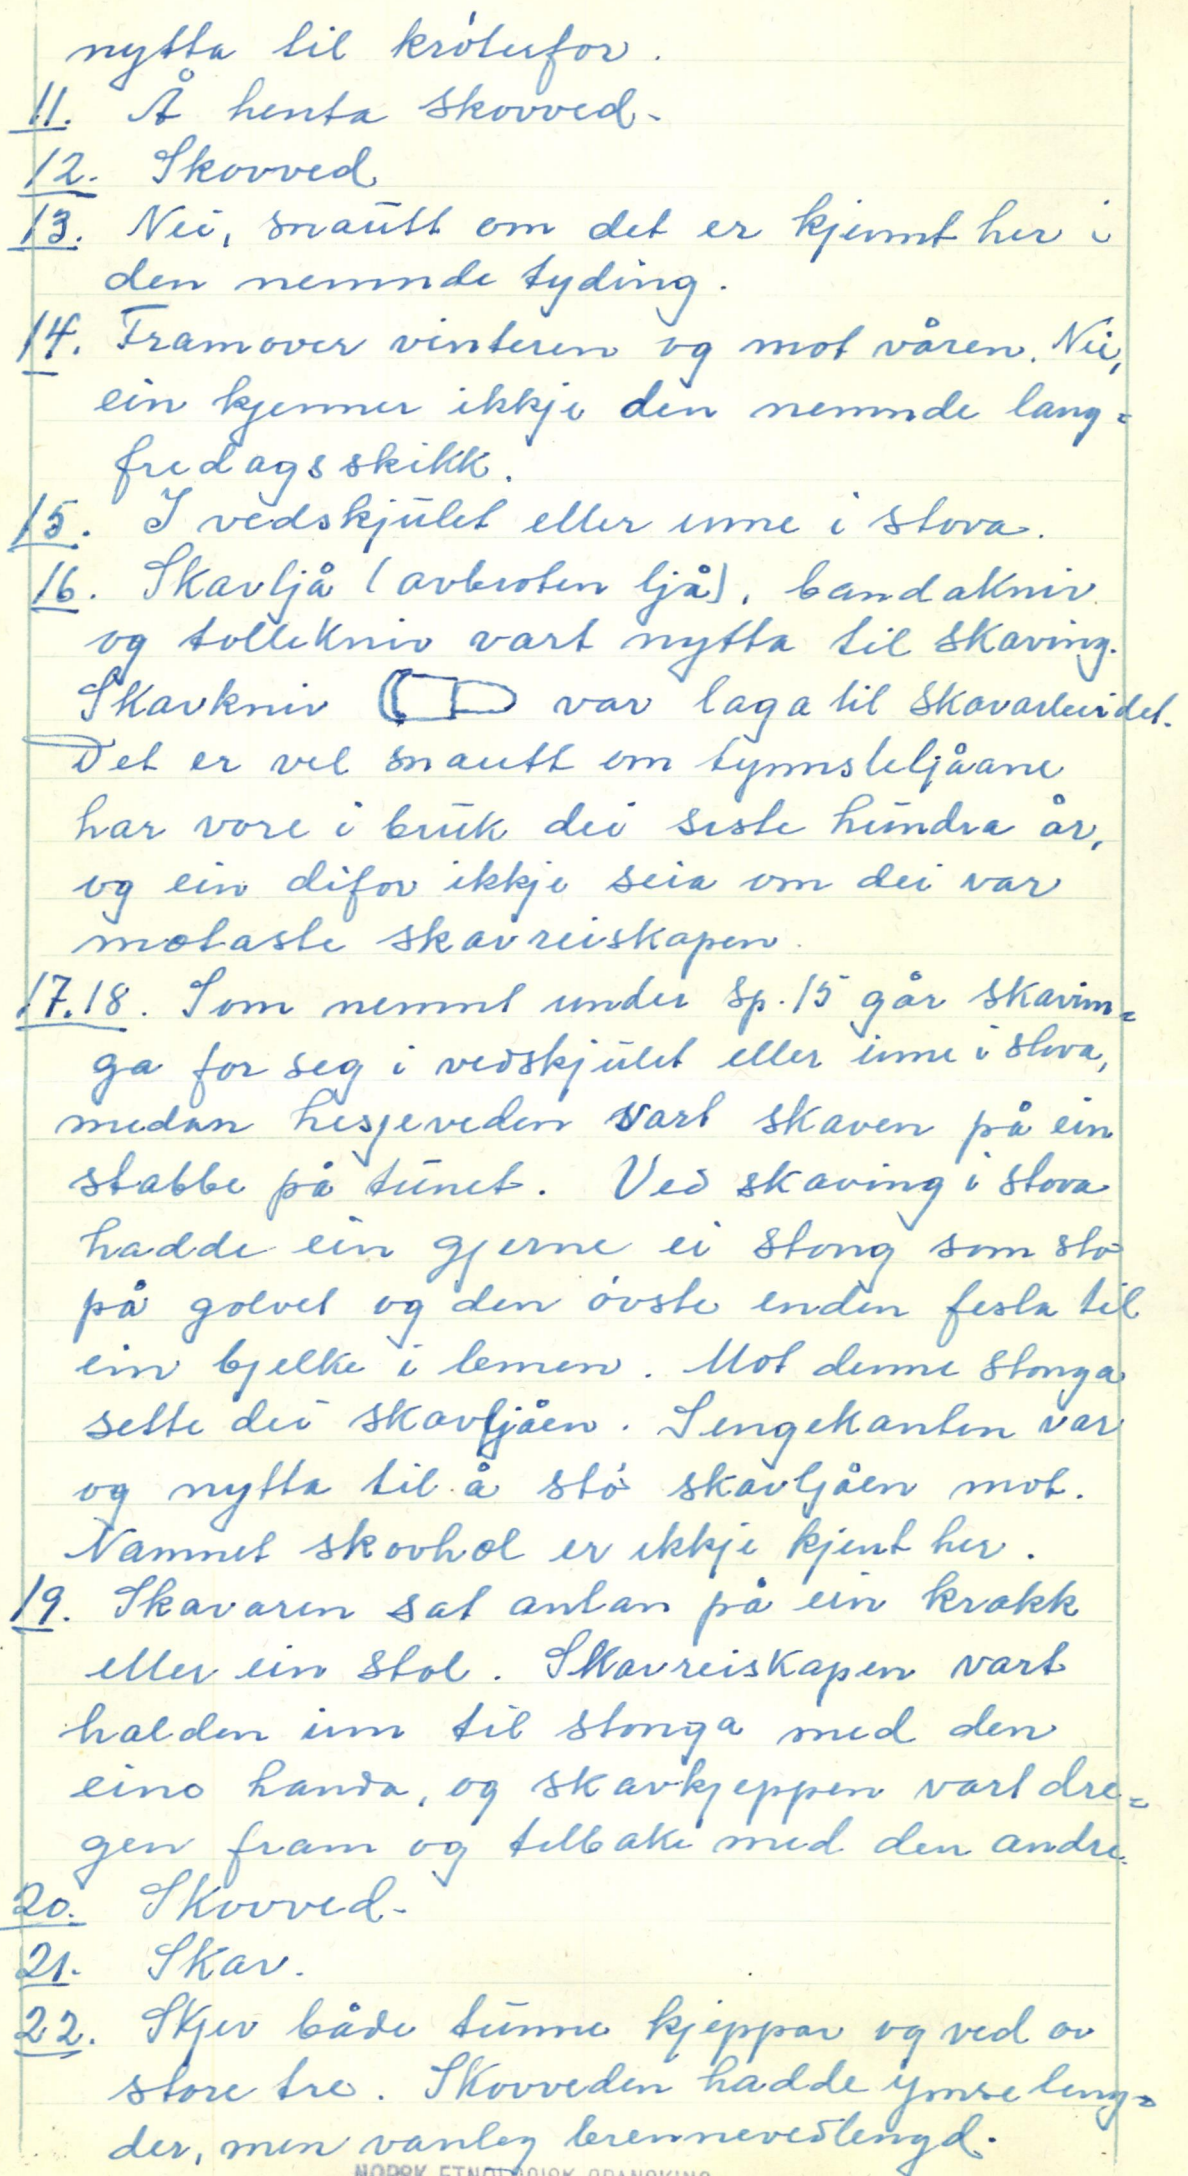 nytta til krøturfor.
11. Å henta skovved.
12. Skovved
13. Nei, snautt om det er kjennt her i
den nemnde tyding.
14. Framover vinteren og mot våren. Nei,
ein kjenner ikkje den nemnde lang=
fredagsskikk.
15. I vedskjulet eller inne i stova.
16. Skavljå (avbroten ljå), bandakniv
og tollekniv vart nytta til skaving.
Skavkniv var laga til skavarbeidet.
Det er vel snautt om tynnsleljåane
har vore i bruk dei siste hundra år,
og ein difor ikkje seia om dei var
motaste skavreiskapen.
17.18. Som nemnt under sp. 15 går skavin=
ga for seg i vedskjulet eller inne i stova,
medan hesjeveden vart skaven på ein
stabbe på tunet. Ved skaving i stova
hadde ein gjerne ei stong som sto
på golvet og den øvste enden festa til
ein bjelke i lemen. Mot denne stonga
sette dei skavljåen. Sengekanten var
og nytta til å stø skavljåen mot.
Namnet skovhol er ikkje kjent her.
19. Skavaren sat antan på ein krakk
eller ein stol. Skavreiskapen vart
halden inn til stonga med den
eino handa, og skavkjeppen vart dre=
gen fram og tilbake med den andre.
20. Skovved.
21. Skav.
22. Skjev både tunne kjeppar og ved av
store tre. Skovveden hadde ymse leng=
der, men vanleg brennevedlengd.
NORSK ETNOLOGISK GRANSKING